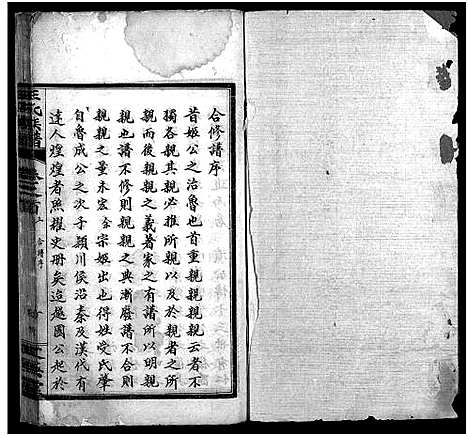 合修譜序
昔姬公之治魯也首重親親親云者不
獨各親其親必推所親以及於親者之所
親而後親親之義著家之有譜所以明親
親也譜不修則親親之典漸廢譜不合則
親親之量未宏余宗姬出也得姓受氏肇
自魯成公之次子潁川侯沿秦及漢代有
達人煌煌者照耀史冊矣迨越國公起於
氏族譜
卷之首
合譜序